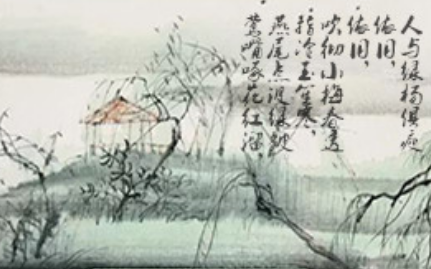 莺嘴啄花红溜,
燕尾点波绿皱
指冷玉笙寒,
吹彻小梅春透
依旧,
依旧,
人与绿杨俱瘦